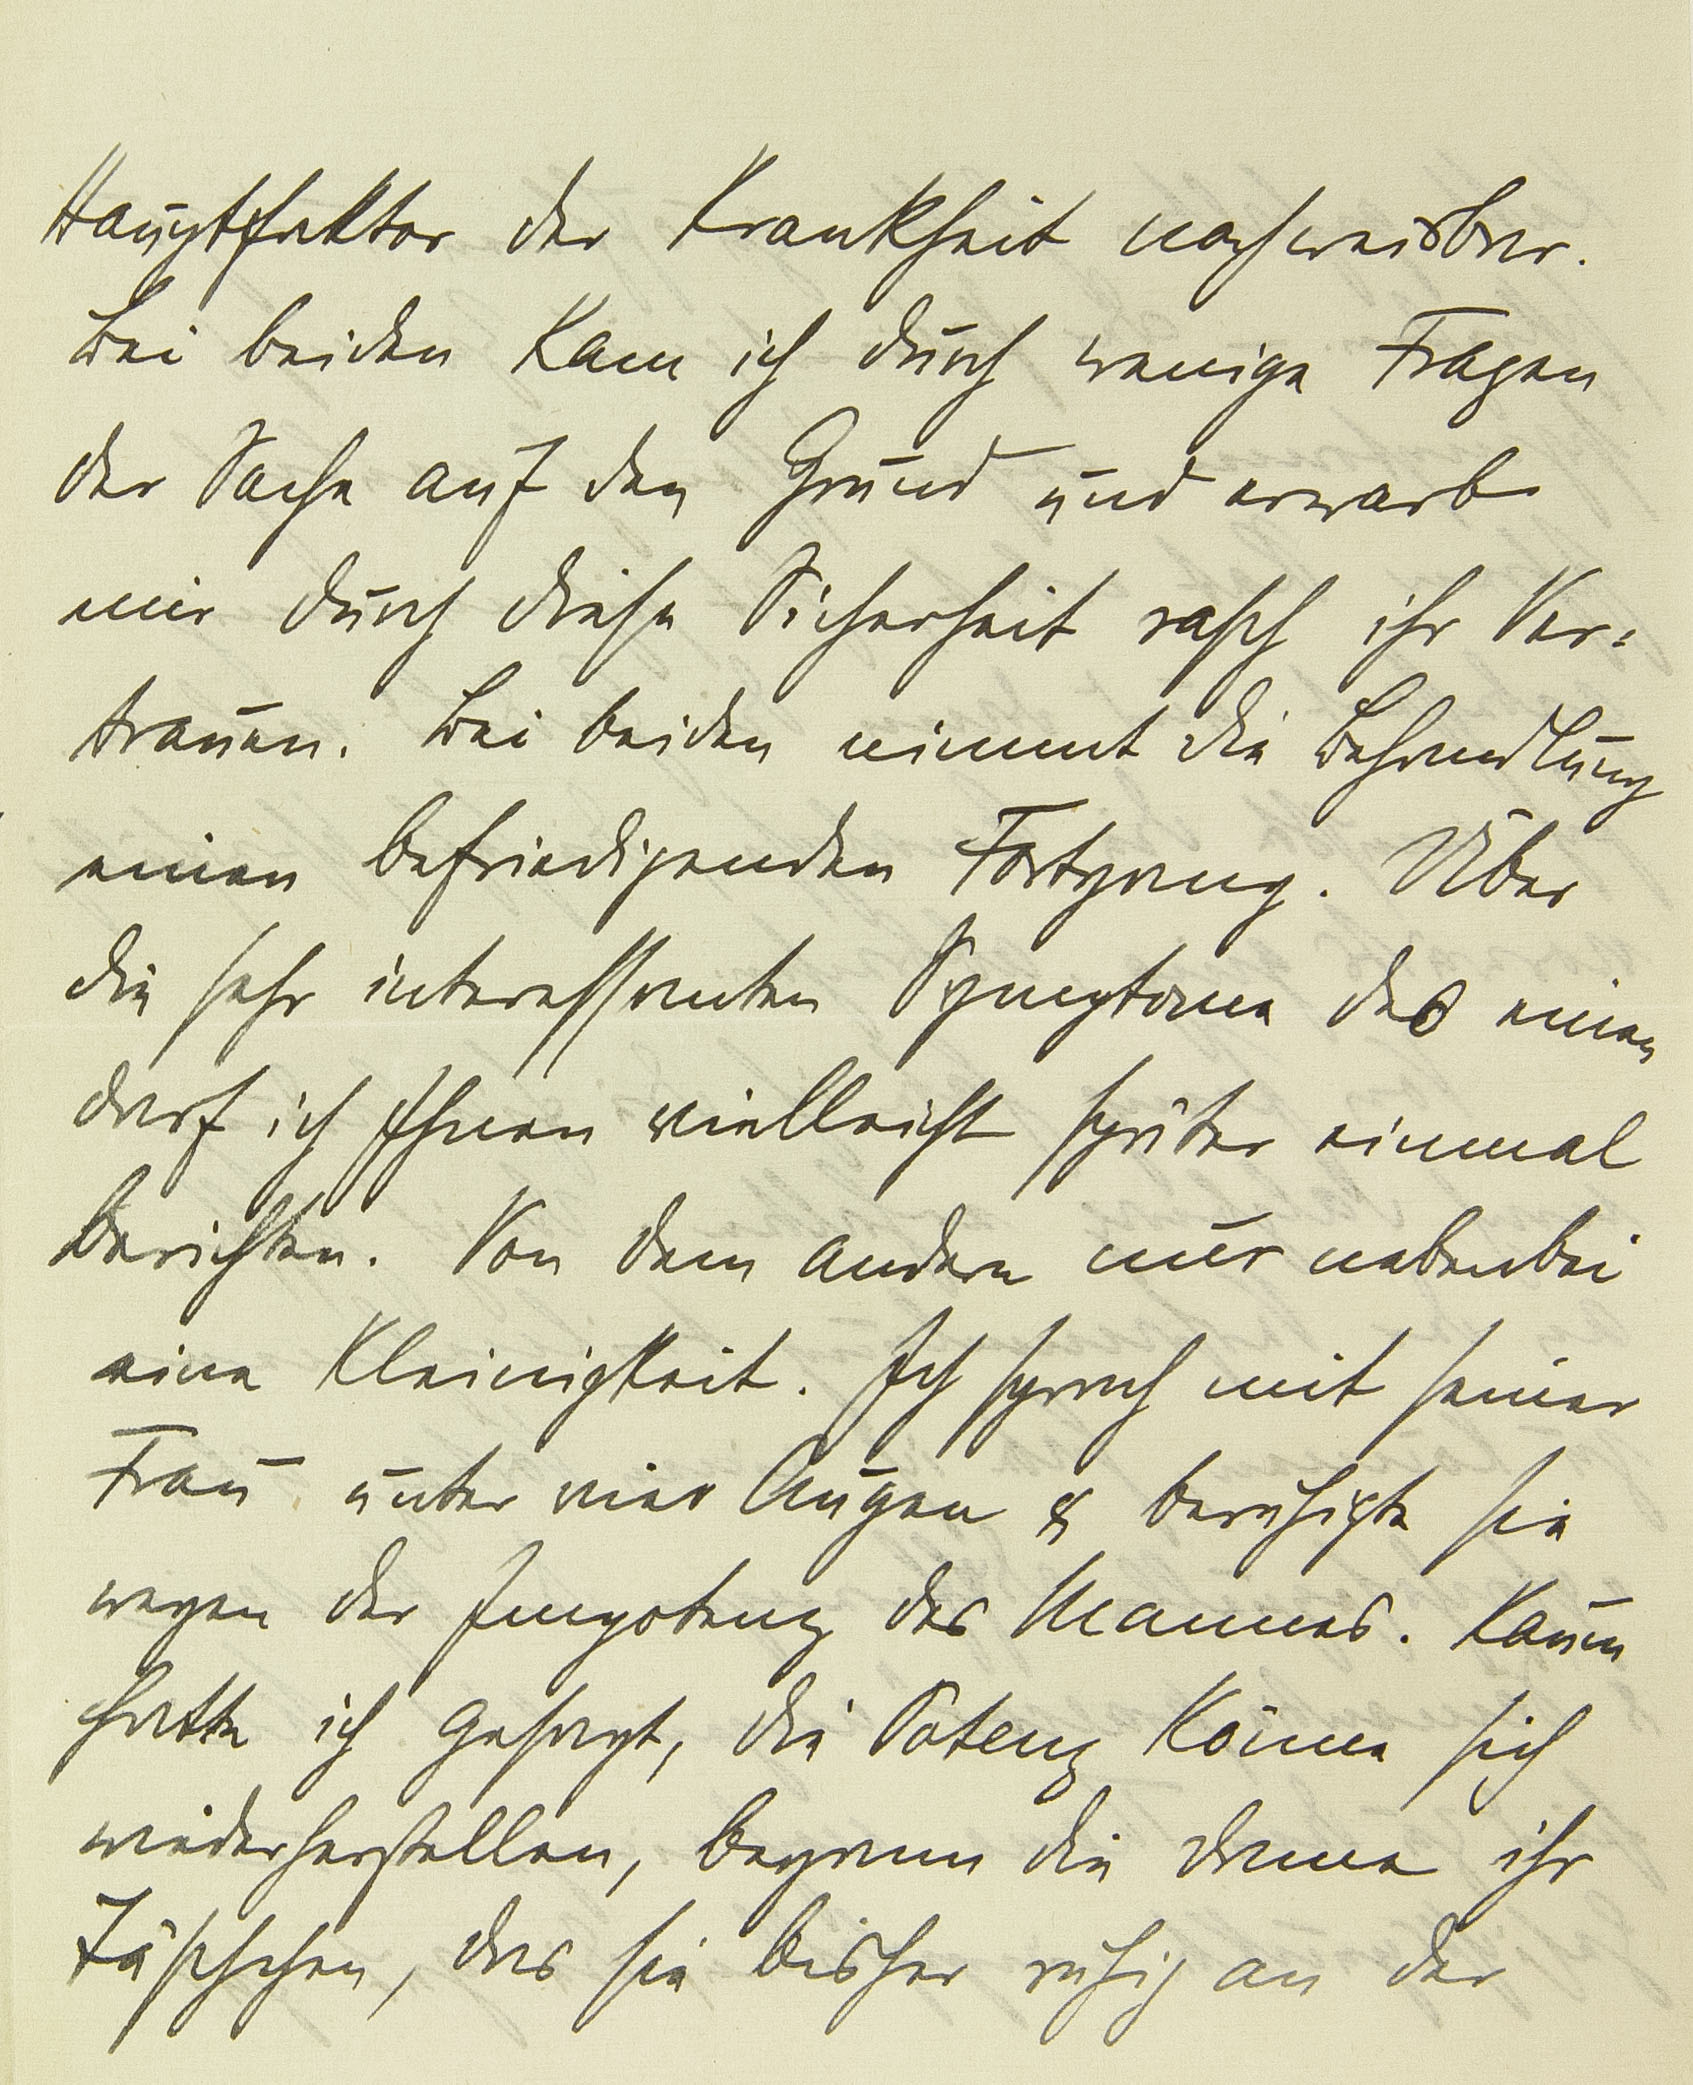 Hauptfaktor der Krankheit nachweisbar.
Bei beiden kam ich durch wenige Fragen
der Sache auf den Grund und erwarb
mir durch diese Sicherheit rasch ihr Ver-
trauen. Bei beiden nimmt die Behandlung
einen befriedigenden Fortgang. Über
die sehr interessanten Symptome des einen
darf ich Ihnen vielleicht später einmal
berichten. Von dem andern nur nebenbei
eine Kleinigkeit. Ich sprach mit seiner
Frau unter vier Augen & beruhigte sie
wegen der Impotenz des Mannes. Kaum
hatte ich gesagt, die Potenz könne sich
wiederherstellen, begann die Dame ihr
Täschchen, das sie bisher ruhig an der